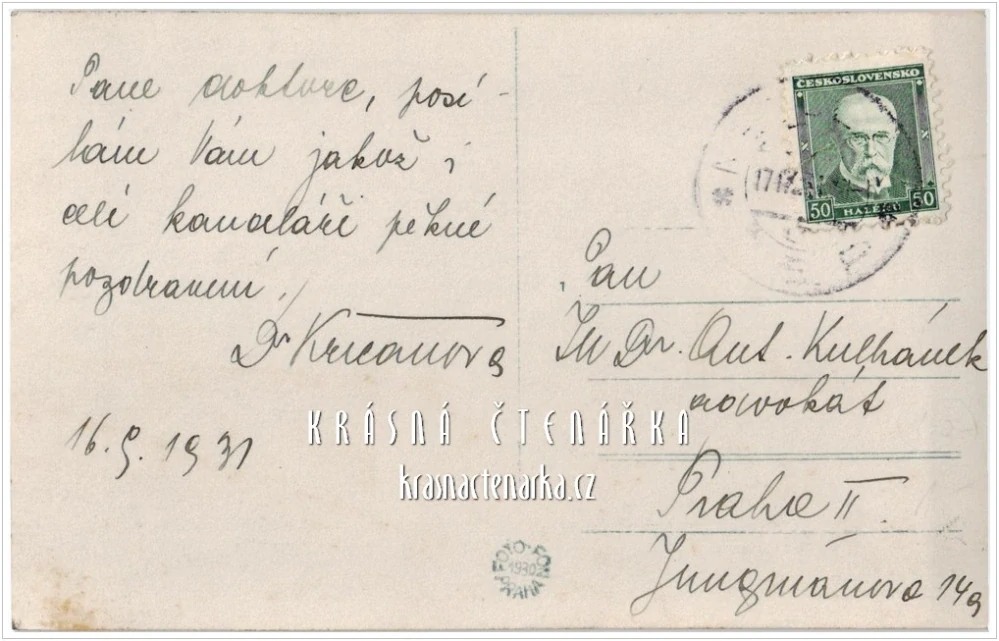 Pane doktore, posí-
lám Vám jakož i
celé kanceláři pěkné
pozdravení.
Dr Křicanova
16. 9. 1931
ČESKOSLOVENSKO
50 HALÉŘŮ 50
Pan
JU Dr. Ant. Kulhánek
advokát
Praha II
Jungmanova 14a
KRÁSNÁ ČTENÁŘKA
krasnactenarka.cz
FOTO-FON
1930
PRAHA